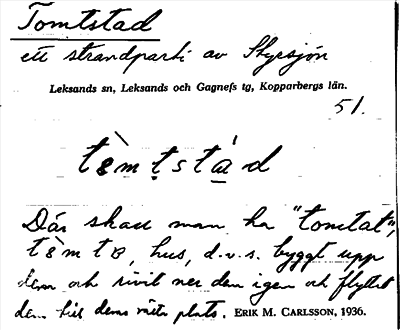 Tomtstad
ett strandparti av Styrsjön
Leksands sn, Leksands och Gagnefs tg, Kopparbergs län.
51.
tòmtstád
Där skall man ha "tomtat",
hus, d.v.s. byggt upp
dem och rivit ner den igen och flyttat
dem till dens rätta plats. ERIK M. CARLSSON, 1936.